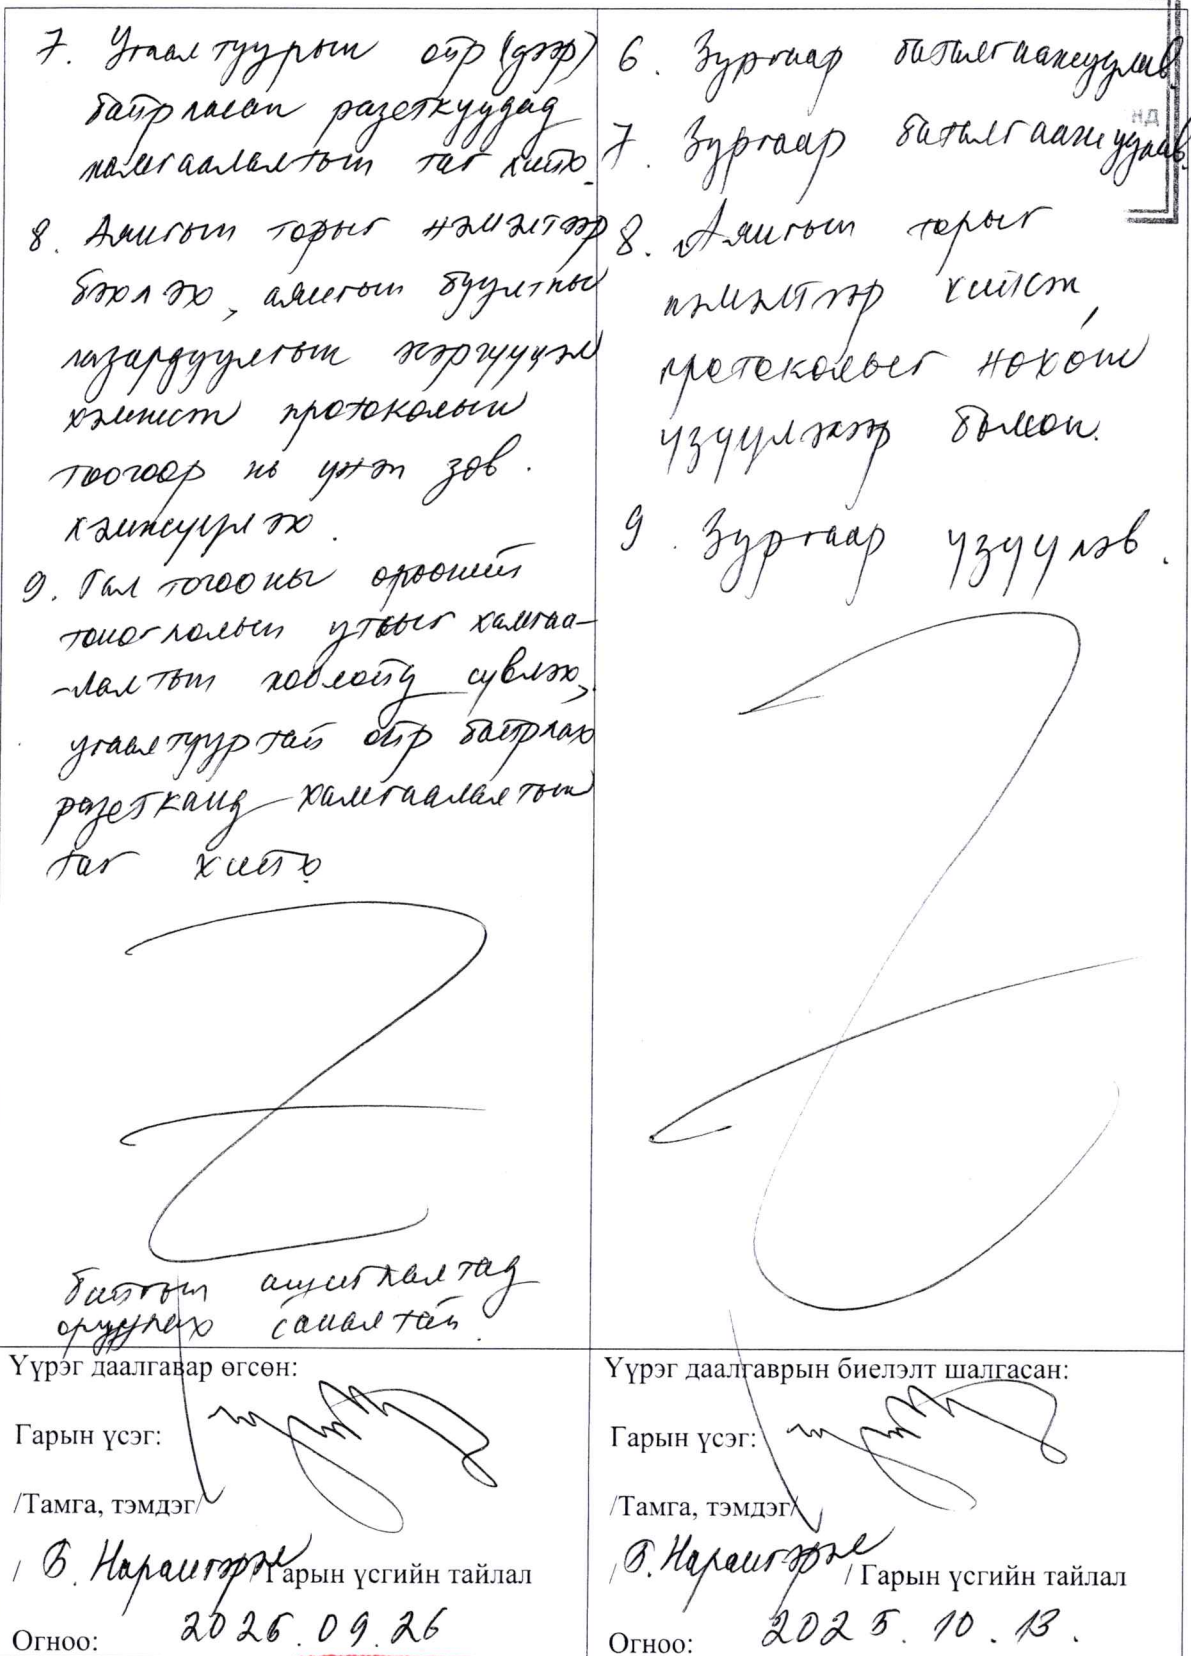 7. Угаалтуурын ойр (дээр)
байрласан разеткуудад
хамгаалалтын таг хийх.
8. Аянгын торыг нэмэлтээр
бэхлэх, аянгын буултны
газардуулгын эсэргүүцэл
хэмжсэн протоколын
тоогоор нь үнэн зөв
хэмжүүлэх.
9. Гал тогооны өрөөний
тоноглолын утсыг хамгаа-
-лалтын хоолойд сүвлэх,
угаалтууртай ойр байрлах
разетканд хамгаалалтын
таг хийх.
байнгын ашиглалтад
оруулах саналтай.
Үүрэг даалгавар өгсөн:
Гарын үсэг:
/Тамга, тэмдэг/
/ Б. Нарангэрэл / Гарын үсгийн тайлал
Огноо: 2025.09.26
6. Зургаар баталгаажуулав.
НД
7. Зургаар баталгаажуулав.
8. Аянгын торыг
нэмэлтээр хийсэн,
протоколыг нөхөн
үзүүлэхээр болсон.
9. Зургаар үзүүлэв.
Үүрэг даалгаврын биелэлт шалгасан:
Гарын үсэг:
/Тамга, тэмдэг/
/ Б. Нарангэрэл / Гарын үсгийн тайлал
Огноо: 2025.10.13.